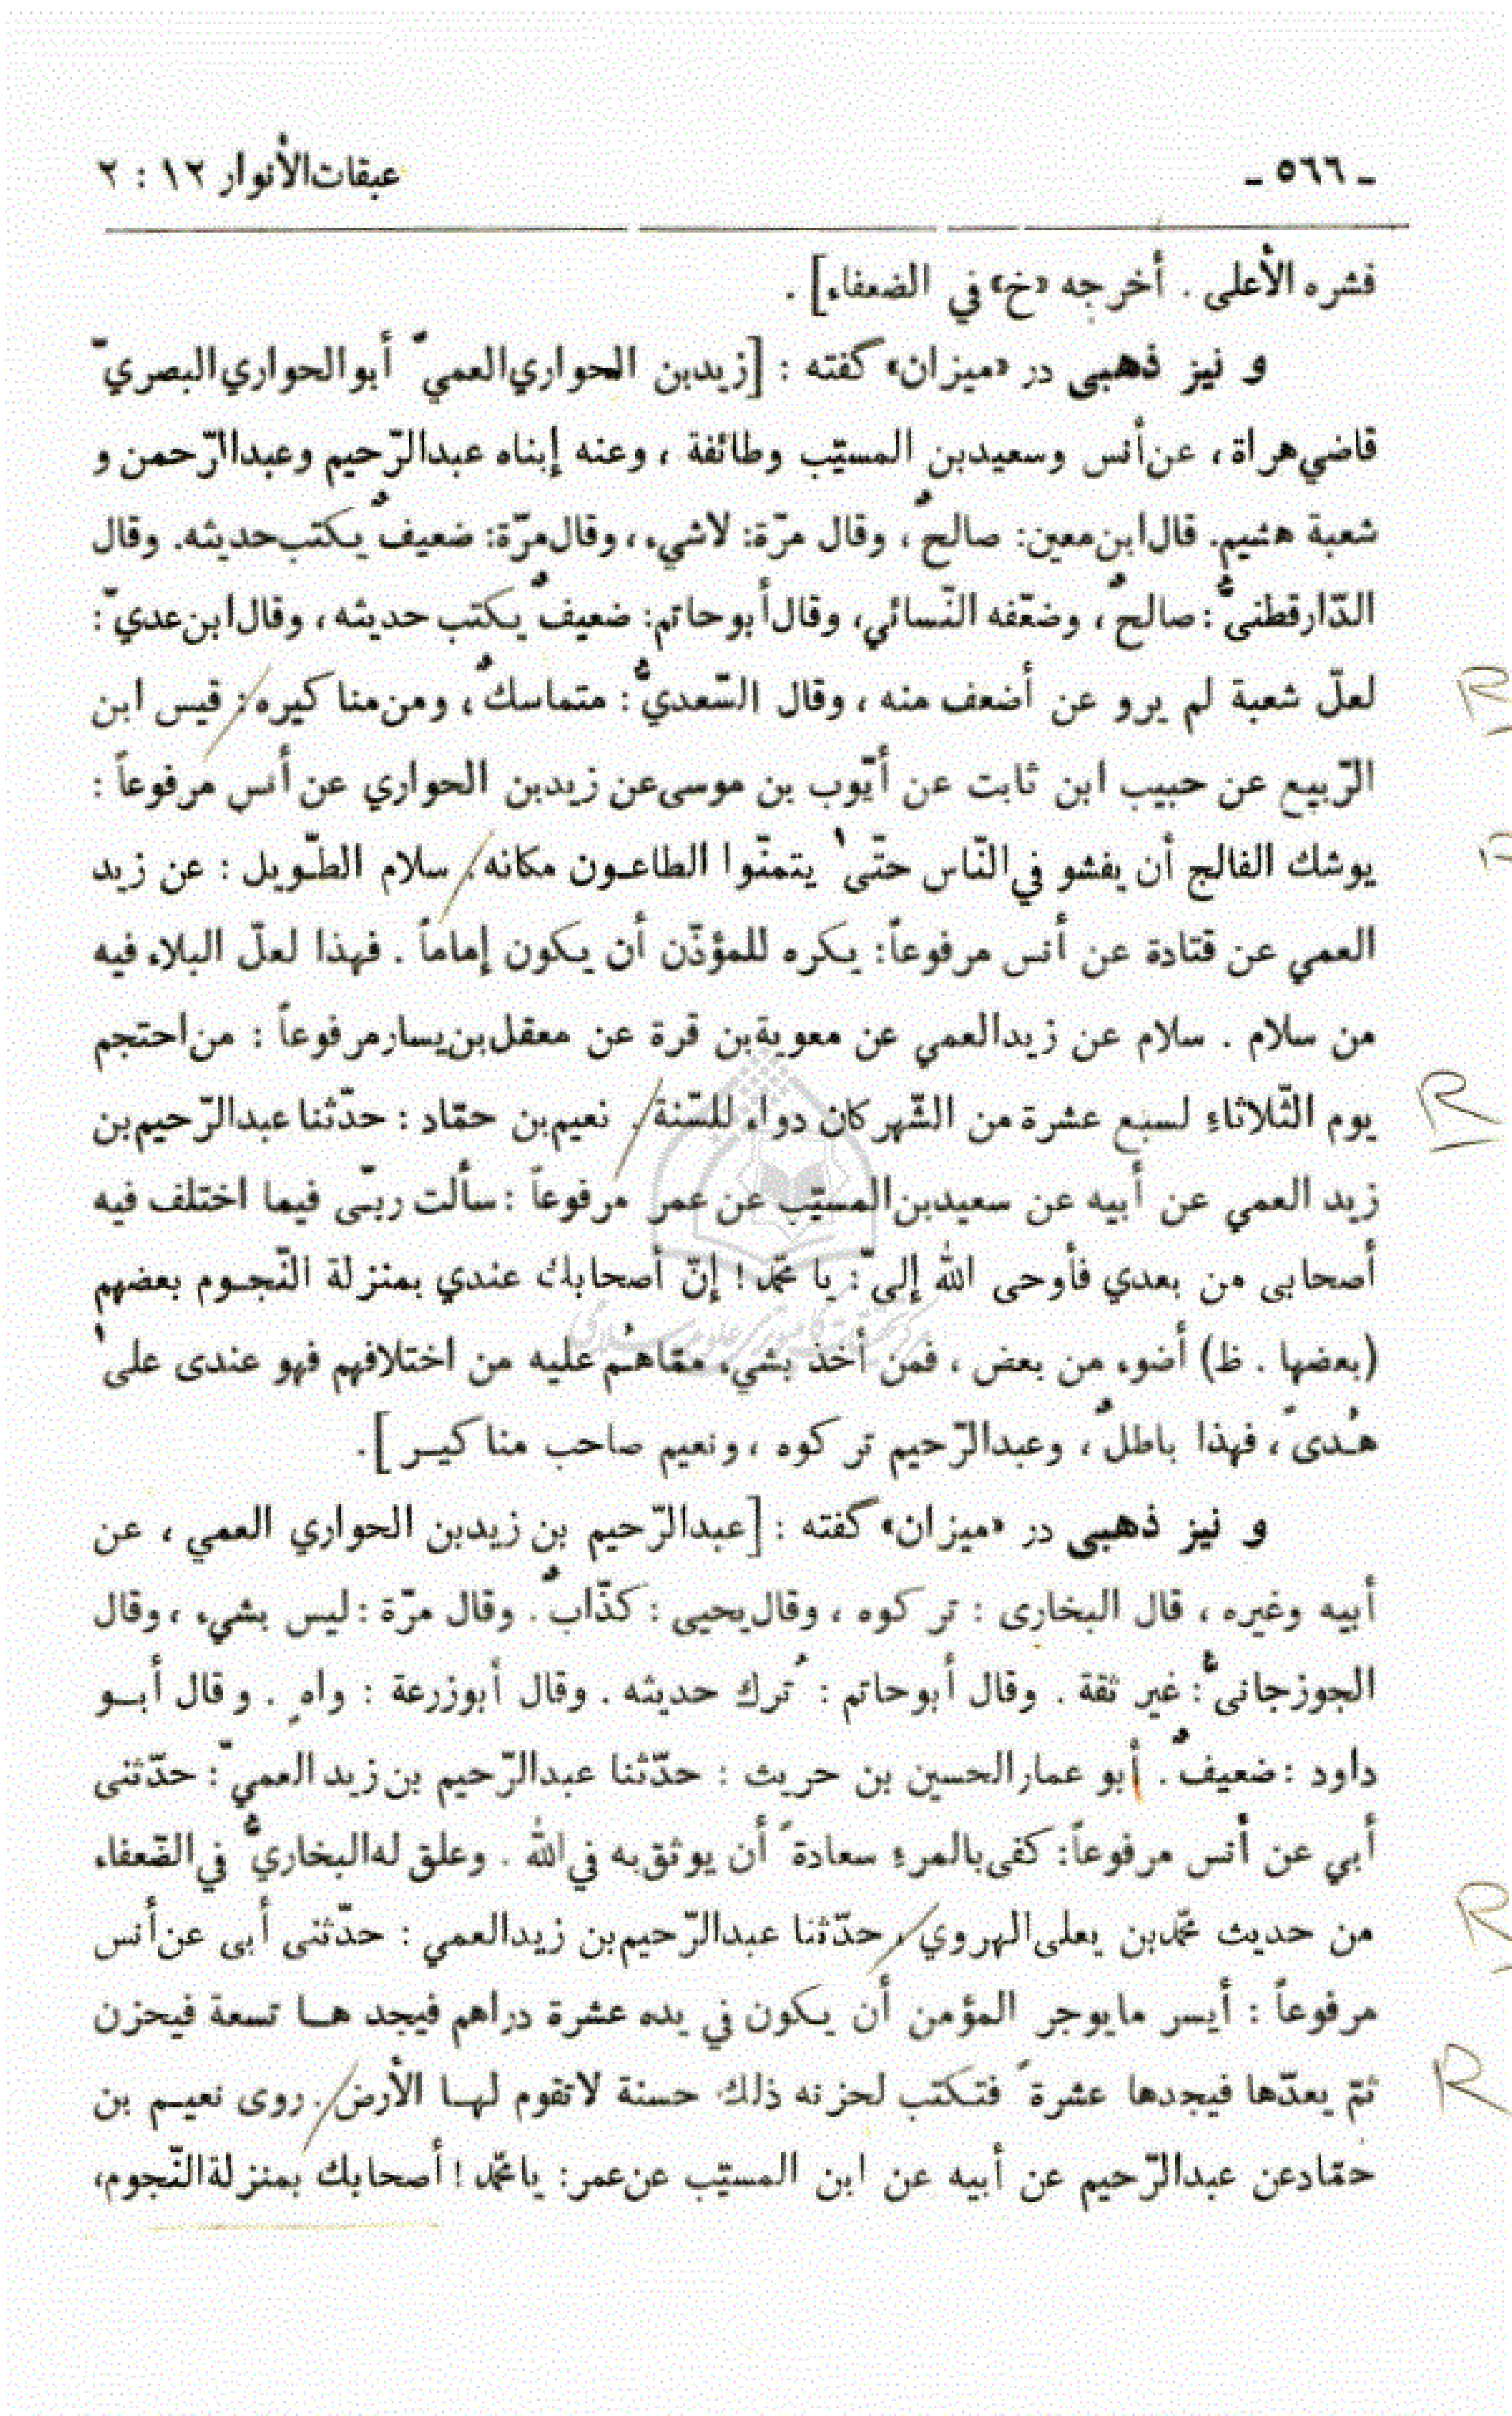 ـ ٥٦٦ ـ
عبقات الأنوار ١٢ : ٢
فشره الأعلى . أخرجه «خ» في الضعفاء] .
و نيز ذهبى در «ميزان» گفته : [زيدبن الحواري العميّ أبو الحواري البصريّ
قاضي هراة ، عن أنس وسعيدبن المسيّب وطائفة ، وعنه إبناه عبدالرّحيم وعبدالرّحمن و
شعبة هشيم. قال ابن معين: صالحٌ ، وقال مرّة: لاشيء ، وقال مرّة: ضعيفٌ يكتب حديثه. وقال
الدّارقطنىُّ : صالحٌ ، وضعّفه النّسائي، وقال أبوحاتم: ضعيفٌ يكتب حديثه ، وقال ابن عديّ :
لعلّ شعبة لم يرو عن أضعف منه ، وقال السّعديُّ : متماسكٌ ، ومن مناكيره : قيس ابن
الرّبيع عن حبيب ابن ثابت عن أيّوب بن موسى عن زيدبن الحواري عن أنس مرفوعاً :
يوشك الفالج أن يفشو في النّاس حتّى يتمنّوا الطاعـون مكانه . سلام الطّـويل : عن زيد
العمي عن قتادة عن أنس مرفوعاً : يكره للمؤذّن أن يكون إماماً . فهذا لعلّ البلاء فيه
من سلام . سلام عن زيدالعمي عن معوية بن قرة عن معقل بن يسار مرفوعاً : من احتجم
يوم الثّلاثاءِ لسبع عشرة من الشّهر كان دواء للسّنة . نعيم بن حمّاد : حدّثنا عبدالرّحيم بن
زيد العمي عن أبيه عن سعيدبن المسيّب عن عمر مرفوعاً : سألت ربّى فيما اختلف فيه
أصحابى من بعدي فأوحى الله إلىّ : يا محمّد ! إنّ أصحابك عندي بمنزلة النّجـوم بعضهم
(بعضها . ظ) أضوء من بعض ، فمن أخذ بشيء ممّاهـُم عليه من اختلافهم فهو عندى على
هـُدىً ، فهذا باطلٌ ، وعبدالرّحيم تركوه ، ونعيم صاحب مناكيـر ] .
و نيز ذهبى در «ميزان» گفته : [عبدالرّحيم بن زيدبن الحواري العمي ، عن
أبيه وغيره ، قال البخارى : تركوه ، وقال يحيى : كذّابٌ . وقال مرّة : ليس بشيء ، وقال
الجوزجانىُّ : غير ثقة . وقال أبوحاتم : تُرك حديثه . وقال أبوزرعة : واهٍ . وقال أبـو
داود : ضعيفٌ . أبو عمار الحسين بن حريث : حدّثنا عبدالرّحيم بن زيد العميّ : حدّثنى
أبي عن أنس مرفوعاً : كفى بالمرءِ سعادةً أن يوثق به في الله . وعلق له البخاريُّ في الضّعفاء
من حديث محمّدبن يعلى الهروي ، حدّثنا عبدالرّحيم بن زيدالعمي : حدّثنى أبى عن أنس
مرفوعاً : أيسر مايوجر المؤمن أن يكون في يده عشرة دراهم فيجد هـا تسعة فيحزن
ثمّ يعدّها فيجدها عشرةً فتكتب لحزنه ذلك حسنة لاتقوم لهـا الأرض . روى نعيـم بن
حمّاد عن عبدالرّحيم عن أبيه عن ابن المسيّب عن عمر : يامحمّد ! أصحابك بمنزلة النّجوم،
R
R
R
R